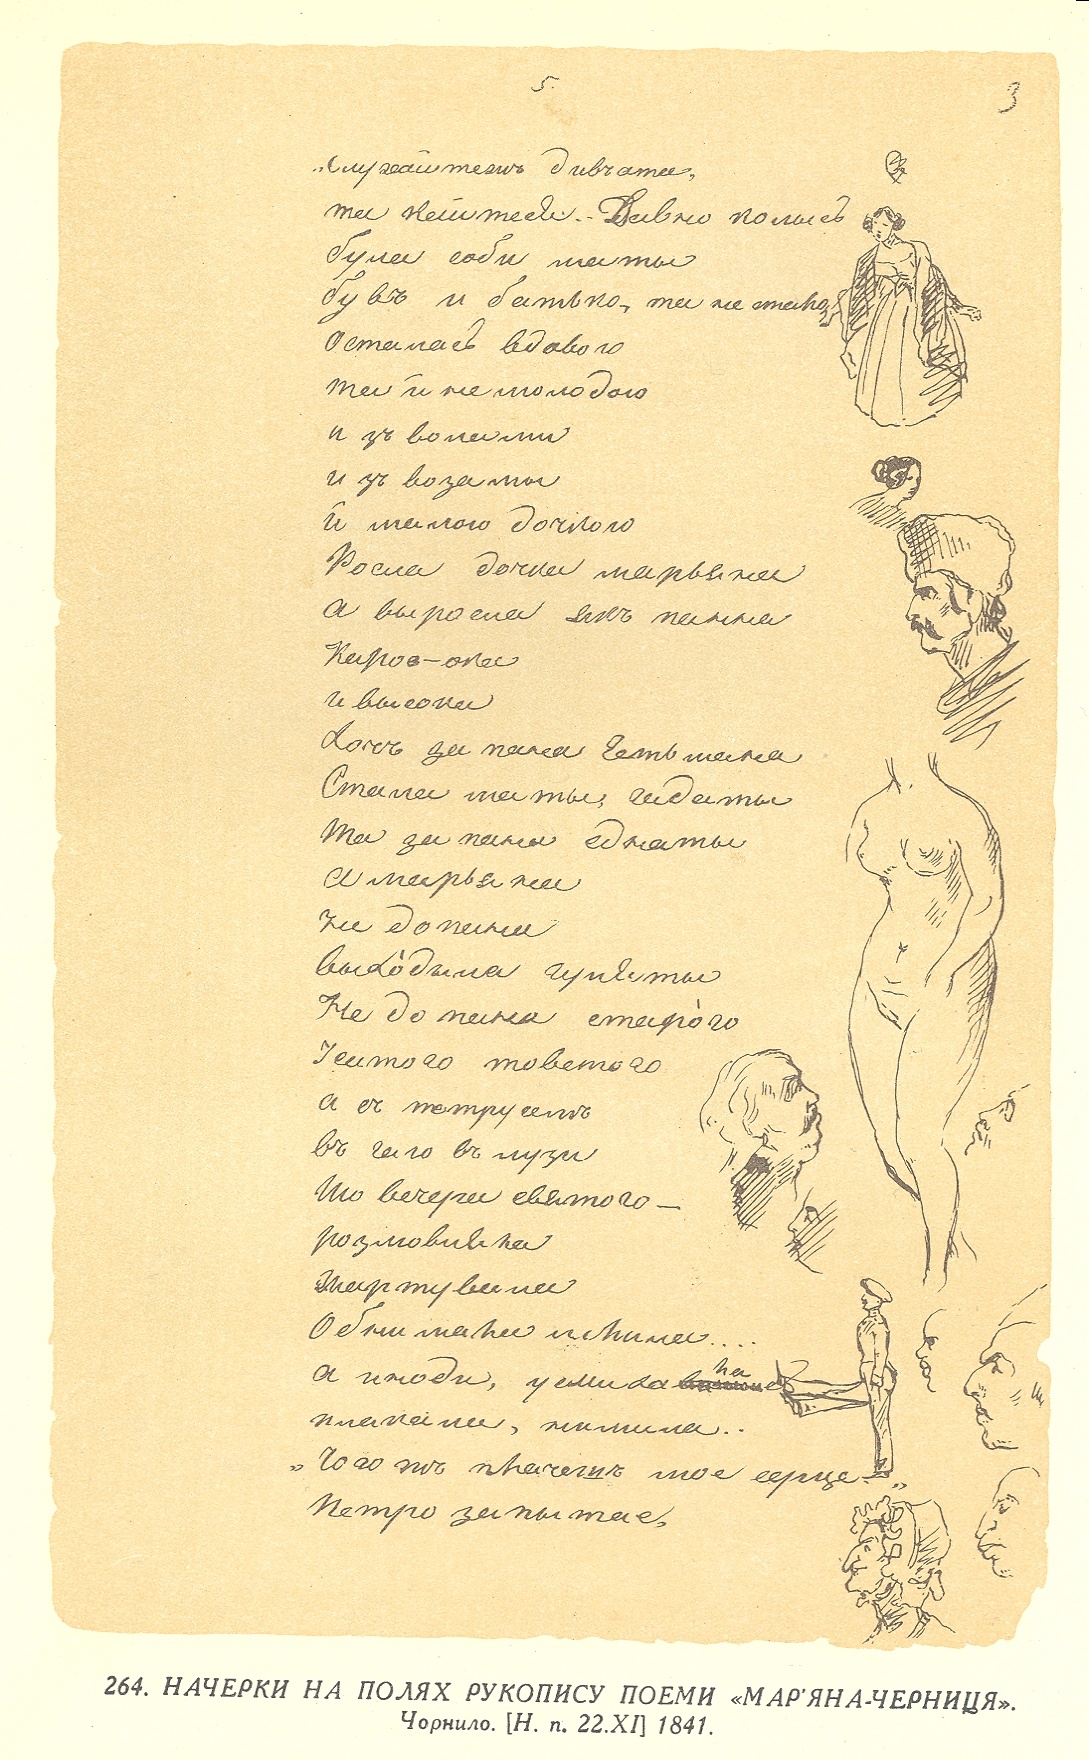 5.
3
„Слухайтежъ дивчата,
та кайтесь.. Давно колысь
була соби маты
бувъ и батько, та не стало,
Осталась вдовою
та й не молодою
и зъ волами
и зъ возамы
й малою дочкою
Росла дочка марьяна
а выросла якъ панна
Кароо-ока
и высока
Хочъ за пана Гетьмана
Стала маты, гадаты
Та за пана еднаты
а марьяна
не до пана
выхо́дыла гуляты
Не до пана старо́го
Усатого товстого
а съ петрусемъ
въ гаю въ лузи
Що вечера святого —
розмовляла
жартувала
Обнимала млила....
а иноди, усмихалась
плакала, нимила..
„Чого жъ плачешъ мое серце.„
Петро запытае,
264. НАЧЕРКИ НА ПОЛЯХ РУКОПИСУ ПОЕМИ «МАР'ЯНА-ЧЕРНИЦЯ».
Чорнило. [Н. п. 22.XI] 1841.